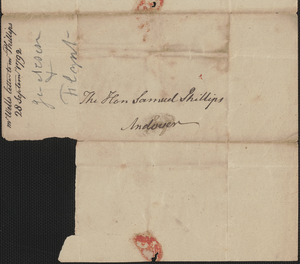 Mr Wells letter to Mr Phillips
28 Septemr 1792
The Hon Samuel Phillips
Andover